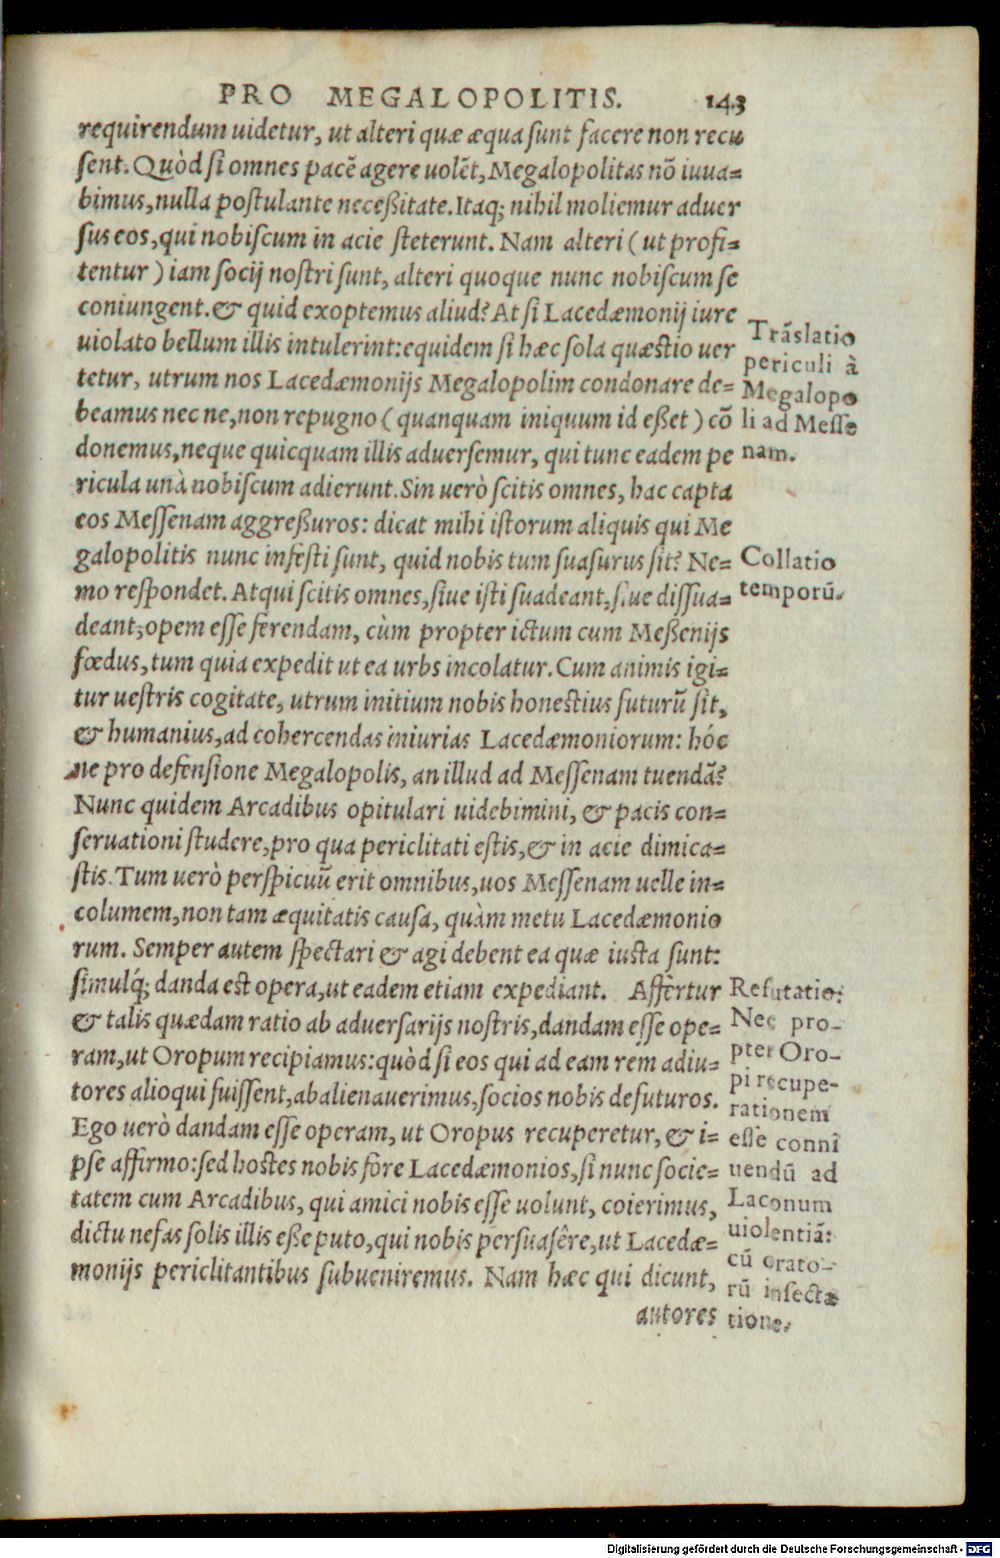 PRO MEGALOPOLITIS. 143
requirendum uidetur, ut alteri quæ æqua sunt facere non recu
sent. Quòd si omnes pacẽ agere uolẽt, Megalopolitas nõ iuua=
bimus, nulla postulante neceßitate. Itaq; nihil moliemur aduer
sus eos, qui nobiscum in acie steterunt. Nam alteri (ut profi=
tentur) iam socij nostri sunt, alteri quoque nunc nobiscum se
coniungent. & quid exoptemus aliud? At si Lacedæmonij iure
uiolato bellum illis intulerint: equidem si hæc sola quæstio uer
tetur, utrum nos Lacedæmonijs Megalopolim condonare de=
beamus nec ne, non repugno (quanquam iniquum id eßet) cõ
donemus, neque quicquam illis aduersemur, qui tunc eadem pe
ricula unà nobiscum adierunt. Sin uerò scitis omnes, hac capta
eos Messenam aggreßuros: dicat mihi istorum aliquis qui Me
galopolitis nunc infesti sunt, quid nobis tum suasurus sit? Ne=
mo respondet. Atqui scitis omnes, siue isti suadeant, siue dissua=
deant, opem esse ferendam, cùm propter ictum cum Meßenijs
fœdus, tum quia expedit ut ea urbs incolatur. Cum animis igi=
tur uestris cogitate, utrum initium nobis honestius futurũ sit,
& humanius, ad cohercendas iniurias Lacedæmoniorum: hóc
ne pro defensione Megalopolis, an illud ad Messenam tuendã?
Nunc quidem Arcadibus opitulari uidebimini, & pacis con=
seruationi studere, pro qua periclitati estis, & in acie dimica=
stis. Tum uerò perspicuũ erit omnibus, uos Messenam uelle in=
columem, non tam æquitatis causa, quàm metu Lacedæmonio
rum. Semper autem spectari & agi debent ea quæ iusta sunt:
simulq́; danda est opera, ut eadem etiam expediant. Affertur
& talis quædam ratio ab aduersarijs nostris, dandam esse ope=
ram, ut Oropum recipiamus: quòd si eos qui ad eam rem adiu=
tores alioqui fuissent, abalienauerimus, socios nobis defuturos.
Ego uerò dandam esse operam, ut Oropus recuperetur, & i=
pse affirmo: sed hostes nobis fore Lacedæmonios, si nunc socie=
tatem cum Arcadibus, qui amici nobis esse uolunt, coierimus,
dictu nefas solis illis eße puto, qui nobis persuasêre, ut Lacedæ=
monijs periclitantibus subueniremus. Nam hæc qui dicunt,
autores
Trãslatio
periculi à
Megalopo
li ad Messe
nam.
Collatio
temporũ.
Refutatio:
Nec pro-
pter Oro-
pi recupe-
rationem
esse connĩ
uendũ ad
Laconum
uiolentiã:
cũ orato-
rũ insecta
tione.
Digitalisierung gefördert durch die Deutsche Forschungsgemeinschaft - DFG